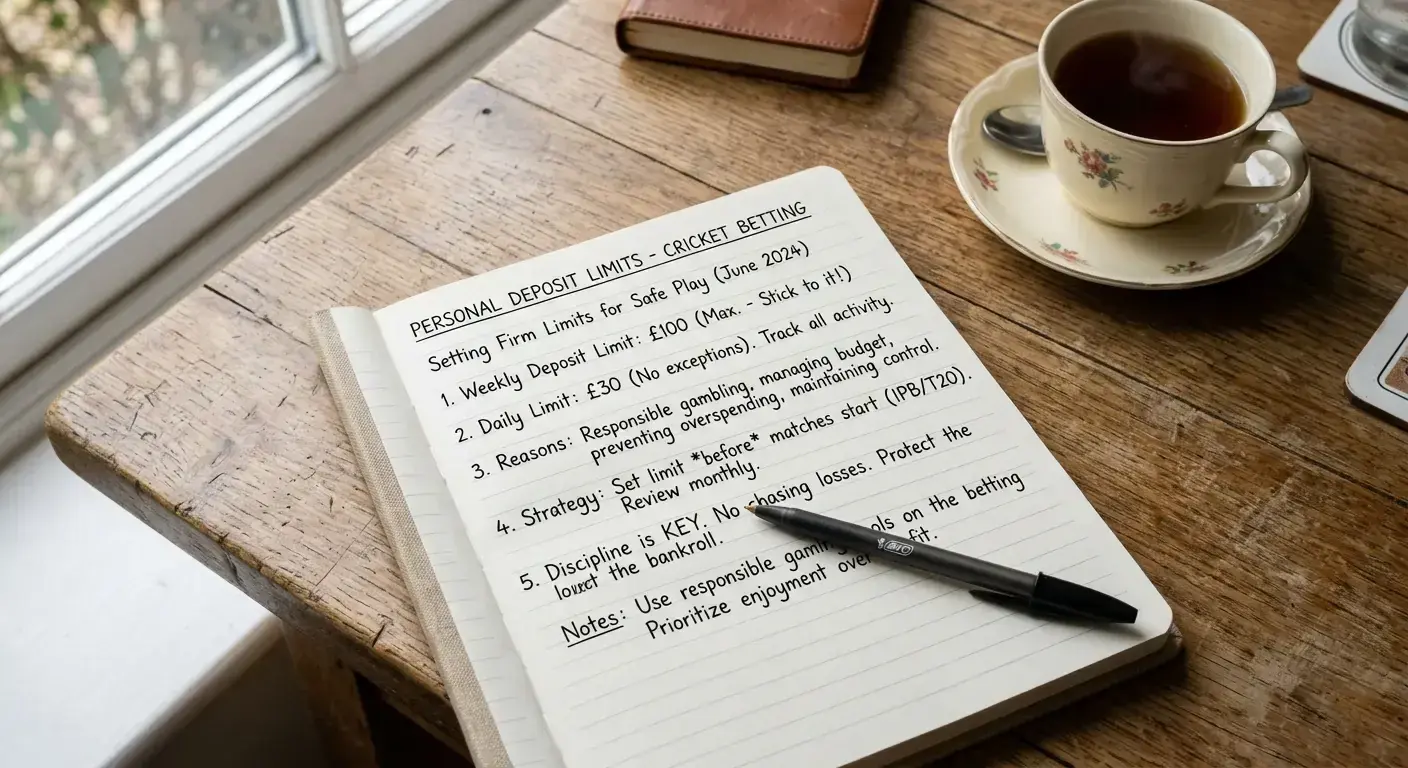 PERSONAL DEPOSIT LIMITS - CRICKET BETTING
Setting Firm Limits for Safe Play (June 2024)
1. Weekly Deposit Limit: £100 (Max. - Stick to it!)
2. Daily Limit: £30 (No exceptions). Track all activity.
3. Reasons: Responsible gambling, managing budget,
preventing overspending, maintaining control.
4. Strategy: Set limit *before* matches start (IPB/T20).
Review monthly.
5. Discipline is KEY. No chasing losses. Protect the
the bankroll.
Notes: Use responsible on the betting
Prioritize enjoyment